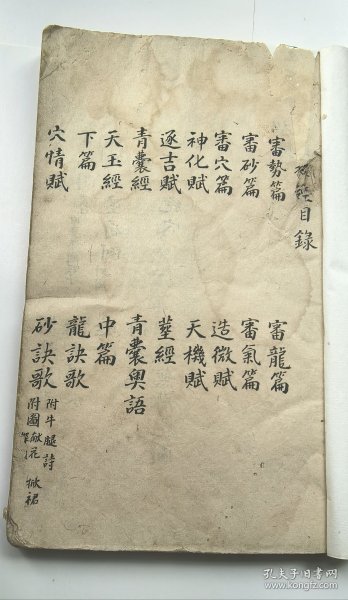 目錄
審勢篇 審龍篇
審砂篇 審氣篇
審穴篇 造微賦
神化賦 天機賦
逐吉賦 葬經
青囊經 青囊奧語
天玉經 中篇
下篇 龍訣歌
穴情賦 砂訣歌
附牛腿詩
附圖
孔夫子旧书网
www.kongfz.com